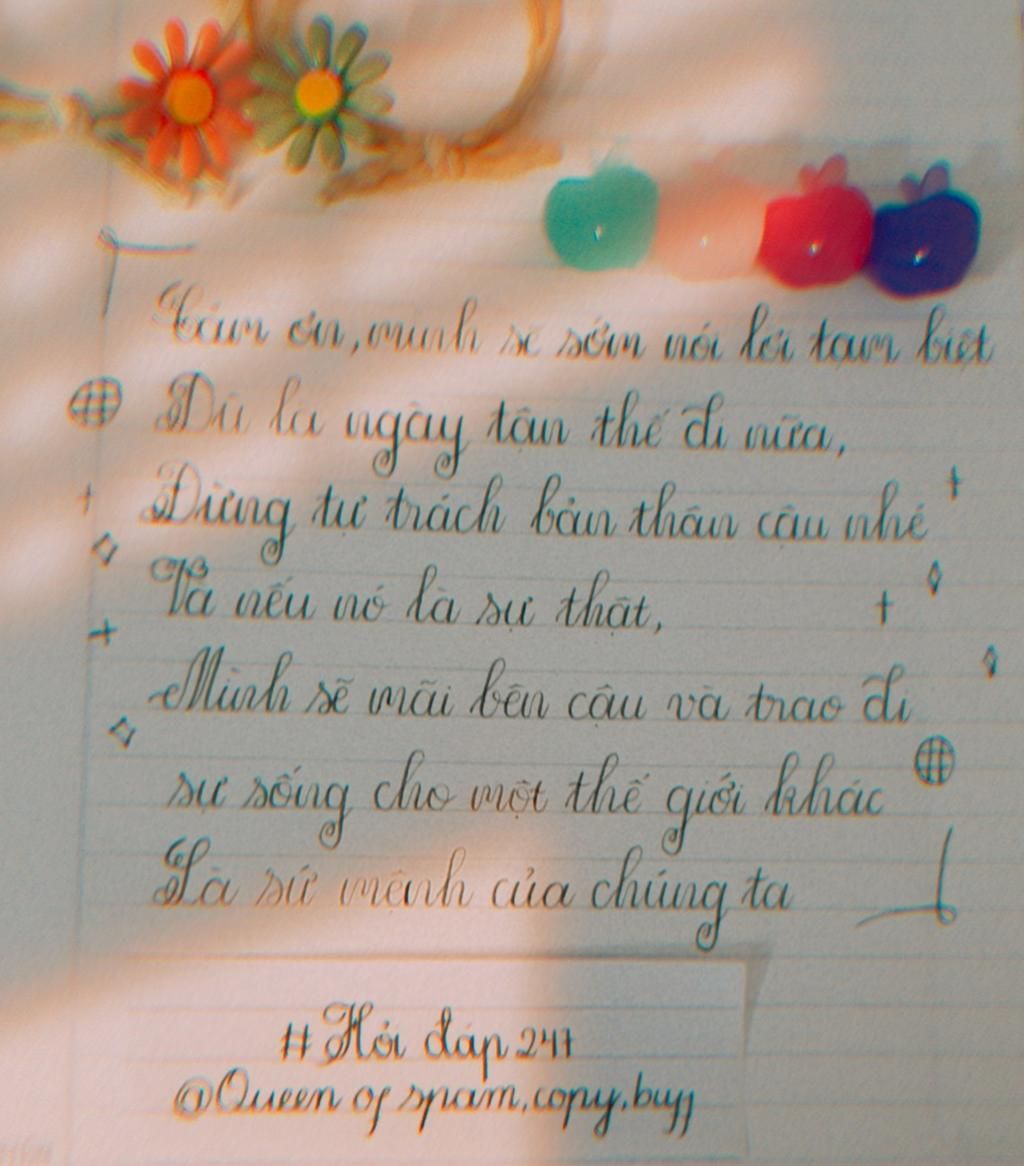 Cảm ơn, mình sẽ sớm nói lời tạm biệt
Dù là ngày tận thế đi nữa,
Đừng tự trách bản thân cậu nhé
Và nếu nó là sự thật,
Mình sẽ mãi bên cậu và trao đi
sự sống cho một thế giới khác
Là sứ mệnh của chúng ta
#Hỏi đáp 247
@Queen of spam.copy.buff